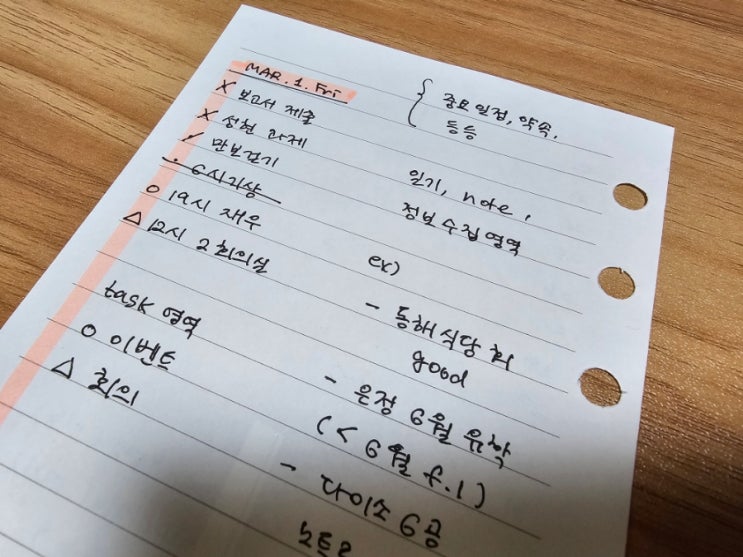 MAR. 1. Fri
X 보고서 제출
X 실험 과제
/ 만보걷기
· 6시기상
O 19시 재우
△ 12시 2회의실
task 영역
O 이벤트
△ 회의
{ 중요일정, 약속,
등등
일기, note,
정보수집영역
ex)
- 동해식당 회
good
- 은정 6월 유학
(< 6월 f.l)
- 다이소 6공
노트